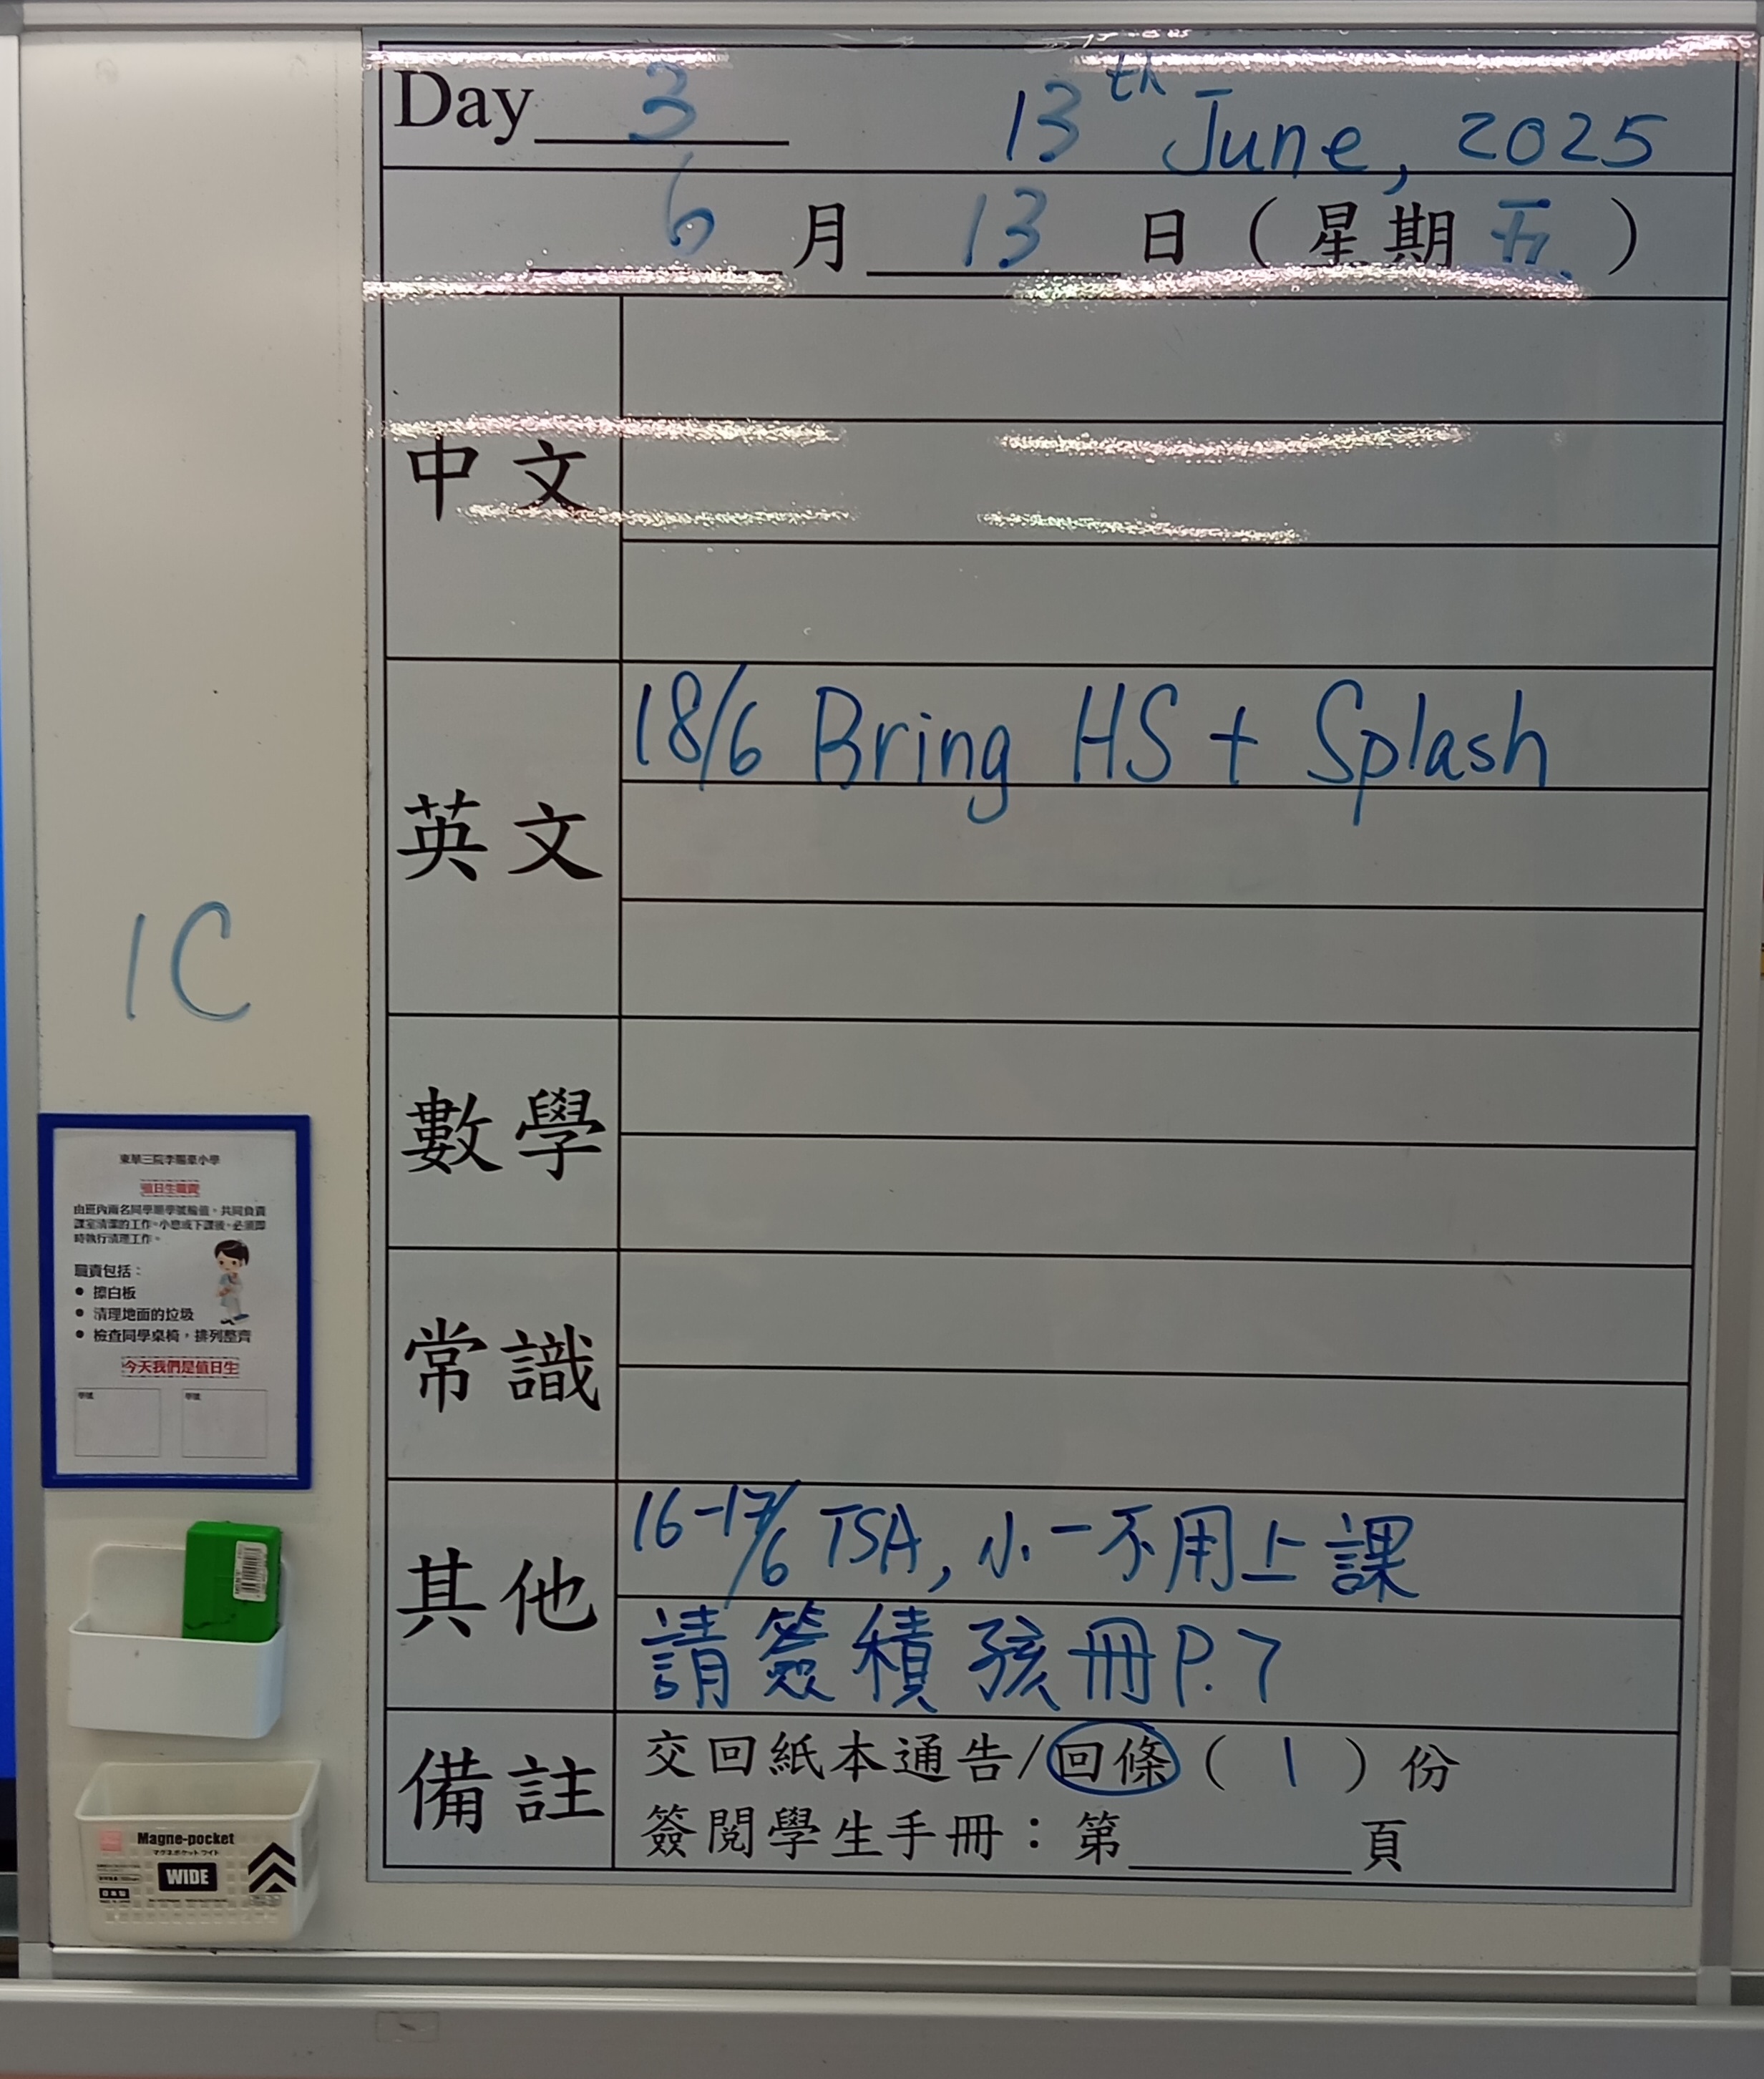 Day 3 13th June, 2025
6 月 13 日 ( 星期 五 )
中文
英文
18/6 Bring HS + Splash
數學
常識
其他
16-17/6 TSA, 小一不用上課
請簽積孩冊P.7
備註
交回紙本通告/回條 ( 1 ) 份
簽閱學生手冊：第 頁
1C
值日生職責
由班內兩名同學順學號輪值，共同負責
課室清潔的工作。小息或下課後，必須即
時執行清理工作。
職責包括：
● 擦白板
● 清理地面的垃圾
● 檢查同學桌椅，排列整齊
今天我們是值日生
學號 學號
Magne-pocket
マグネポケット ワイド
WIDE
日本製